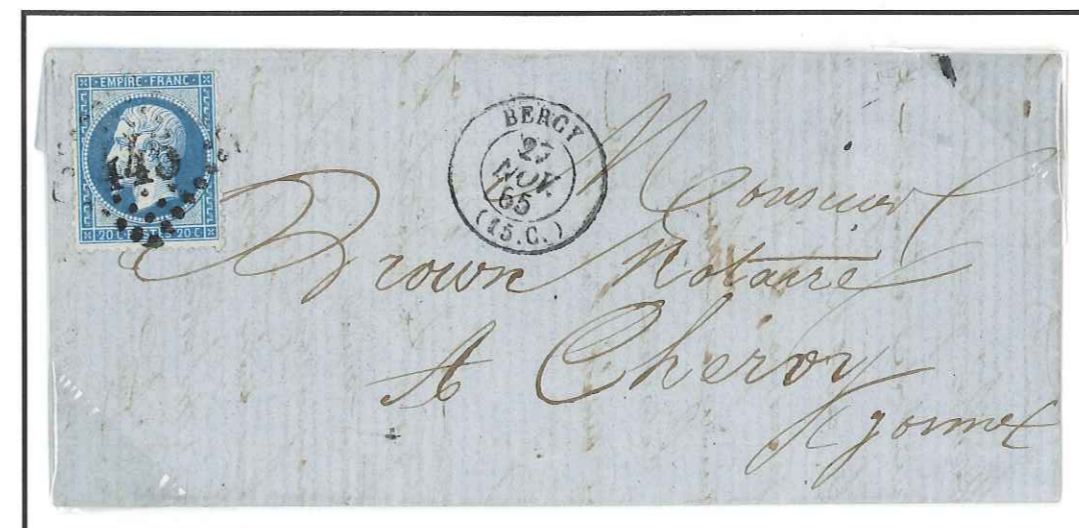 EMPIRE · FRANC ·
445
20 C POSTES 20 C
BERCY
27
NOV.
65
(15.C.)
Monsieur
Brown Notaire
A Cheroy
Yonne